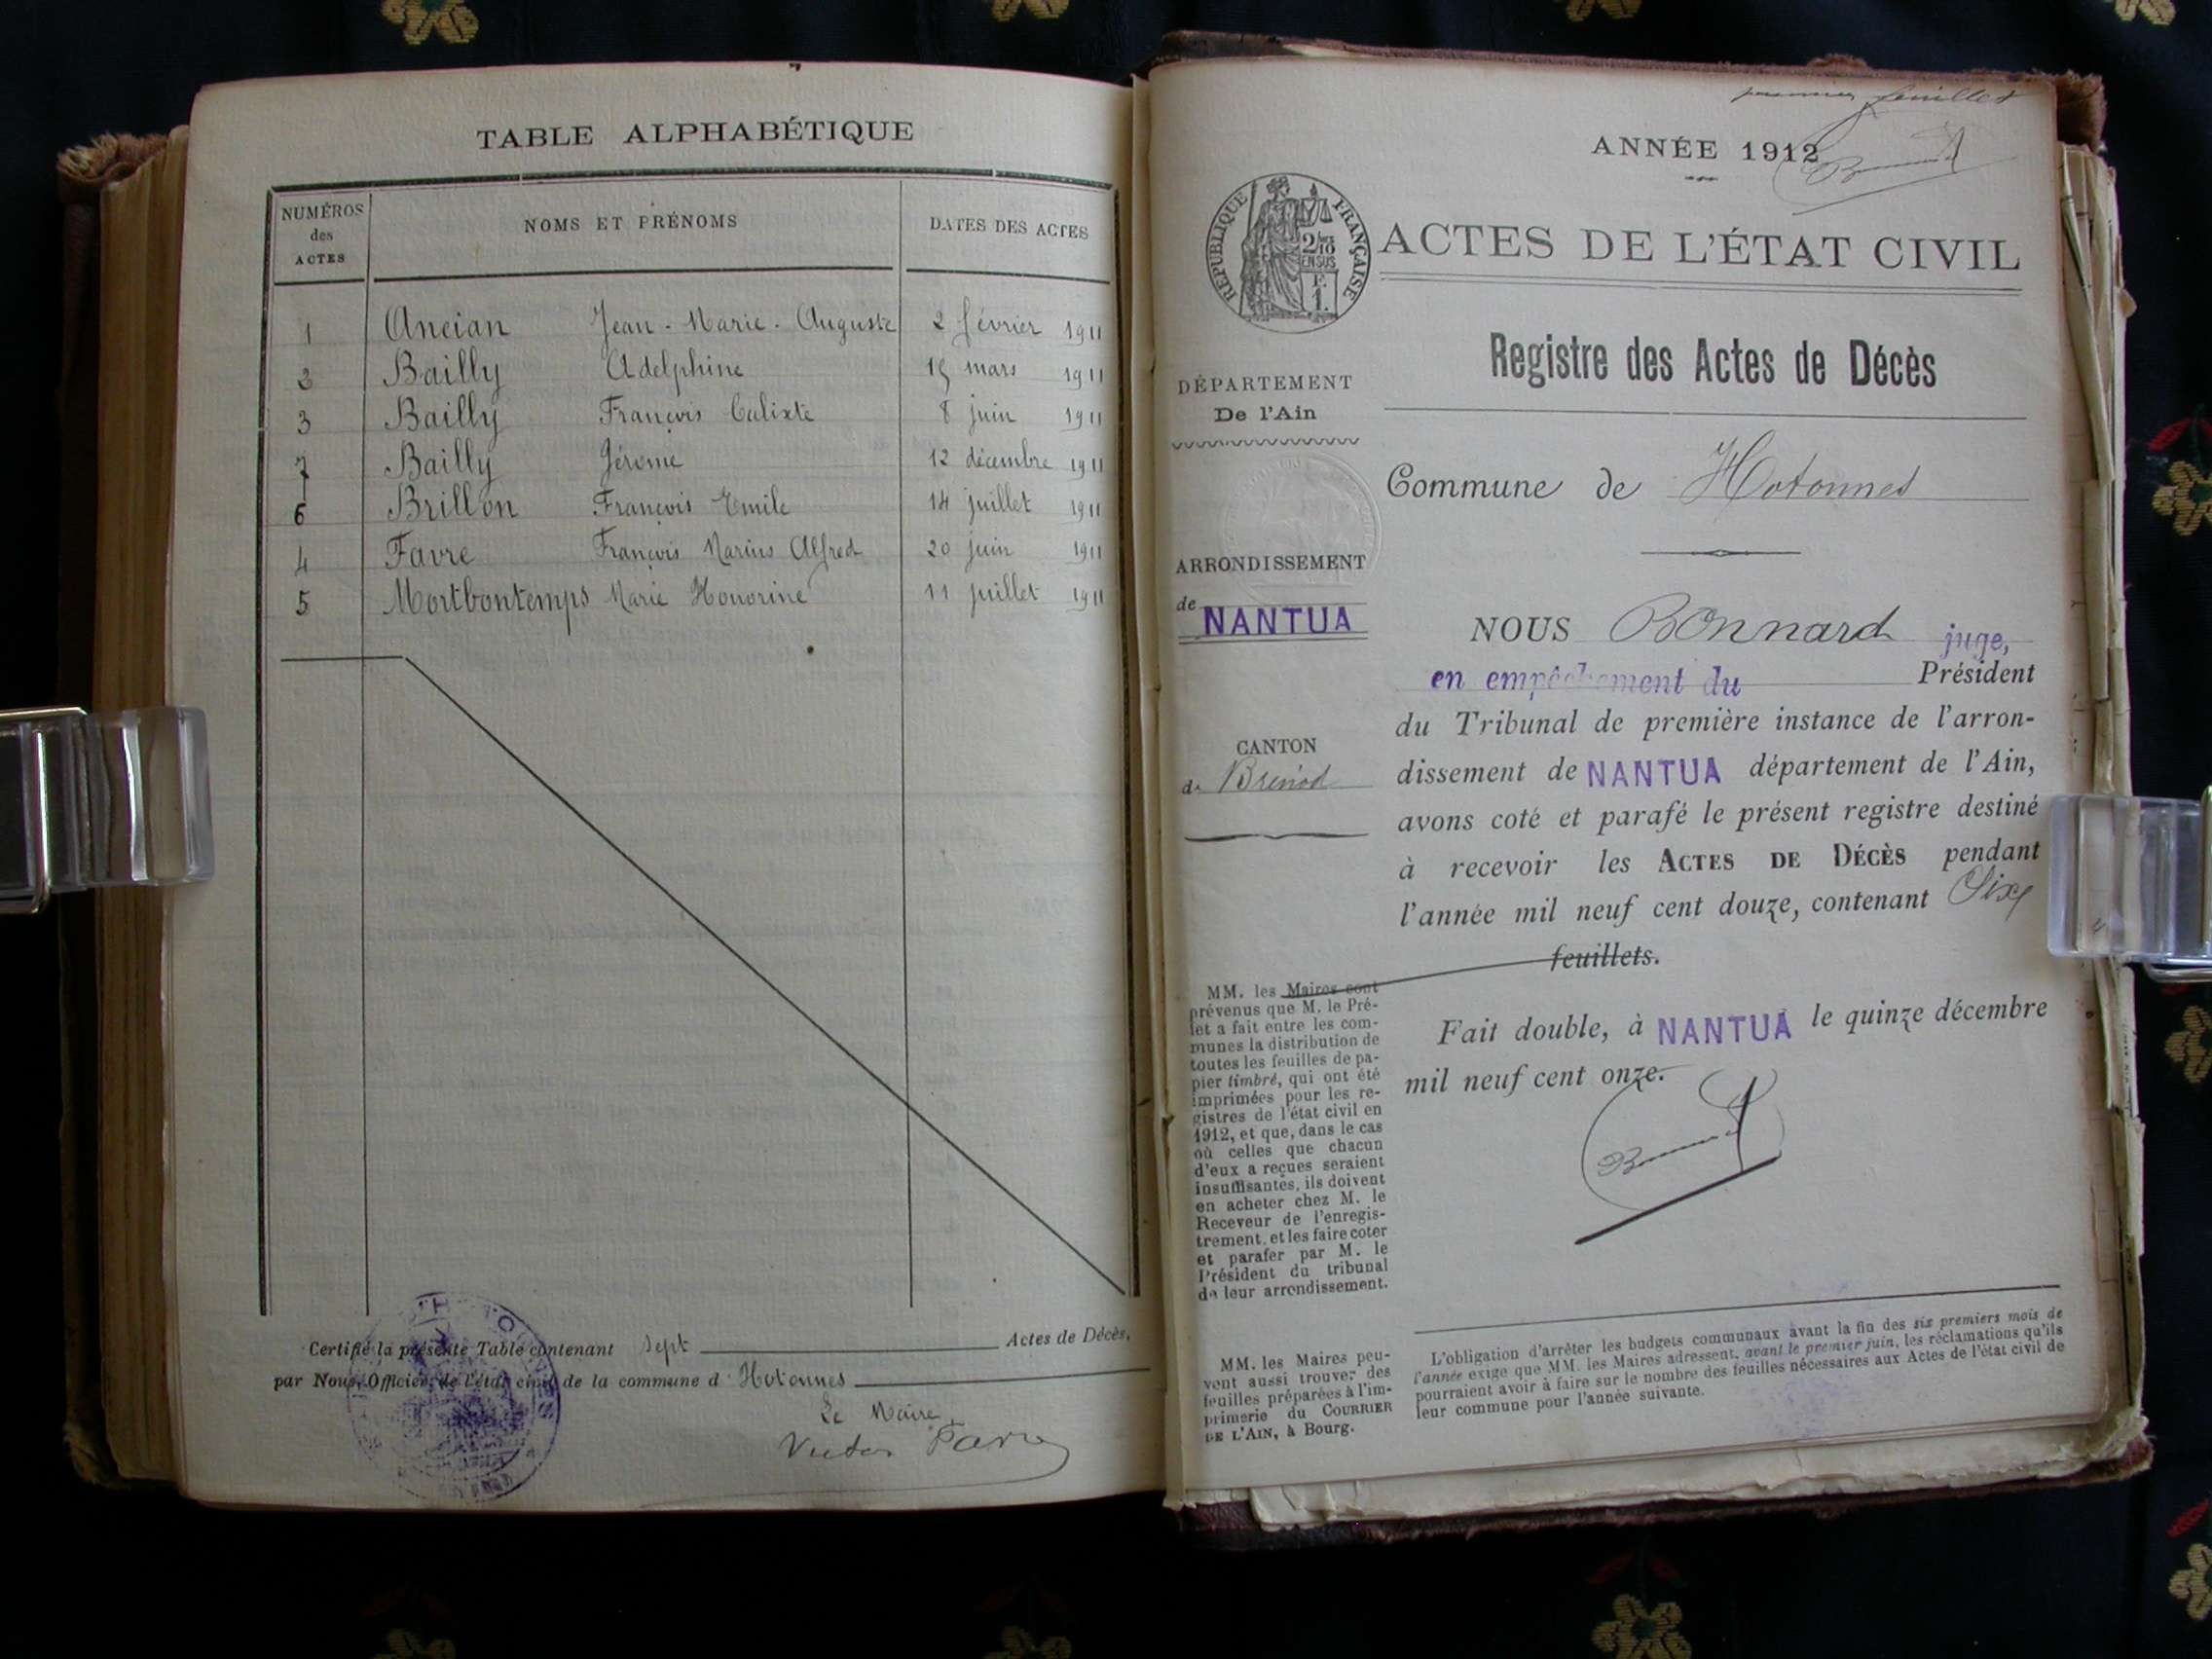 TABLE ALPHABÉTIQUE
NUMÉROS des ACTES
NOMS ET PRÉNOMS
DATES DES ACTES
1 Ancian Jean-Marie-Auguste 2 février 1911
2 Bailly Adelphine 15 mars 1911
3 Bailly François Calixte 8 juin 1911
7 Bailly Jérome 12 décembre 1911
6 Brillon François Emile 14 juillet 1911
4 Favre François Marius Alfred 20 juin 1911
5 Mortbontemps Marie Honorine 11 juillet 1911
Certifié la présente Table contenant sept Actes de Décès,
par Nous, Officier de l'état civil de la commune d Hotonnes
Le Maire
Victor
feuillet
ANNÉE 1912
RÉPUBLIQUE FRANÇAISE
2/10
EN SUS
F.
1.
ACTES DE L'ÉTAT CIVIL
Registre des Actes de Décès
DÉPARTEMENT
De l'Ain
Commune de Hotonnes
ARRONDISSEMENT
de NANTUA
CANTON
de Brénod
NOUS Bonnard juge,
en empêchement du Président
du Tribunal de première instance de l'arron-
dissement de NANTUA département de l'Ain,
avons coté et parafé le présent registre destiné
à recevoir les ACTES DE DÉCÈS pendant
l'année mil neuf cent douze, contenant Six
feuillets.
Fait double, à NANTUA le quinze décembre
mil neuf cent onze.
MM. les Maires sont
prévenus que M. le Pré-
fet a fait entre les com-
munes la distribution de
toutes les feuilles de pa-
pier timbré, qui ont été
imprimées pour les re-
gistres de l'état civil en
1912, et que, dans le cas
où celles que chacun
d'eux a reçues seraient
insuffisantes, ils doivent
en acheter chez M. le
Receveur de l'enregis-
trement, et les faire coter
et parafer par M. le
Président du tribunal
de leur arrondissement.
MM. les Maires peu-
vent aussi trouver des
feuilles préparées à l'im-
primerie du COURRIER
DE L'AIN, à Bourg.
L'obligation d'arrêter les budgets communaux avant la fin des six premiers mois de
l'année exige que MM. les Maires adressent, avant le premier juin, les réclamations qu'ils
pourraient avoir à faire sur le nombre des feuilles nécessaires aux Actes de l'état civil de
leur commune pour l'année suivante.